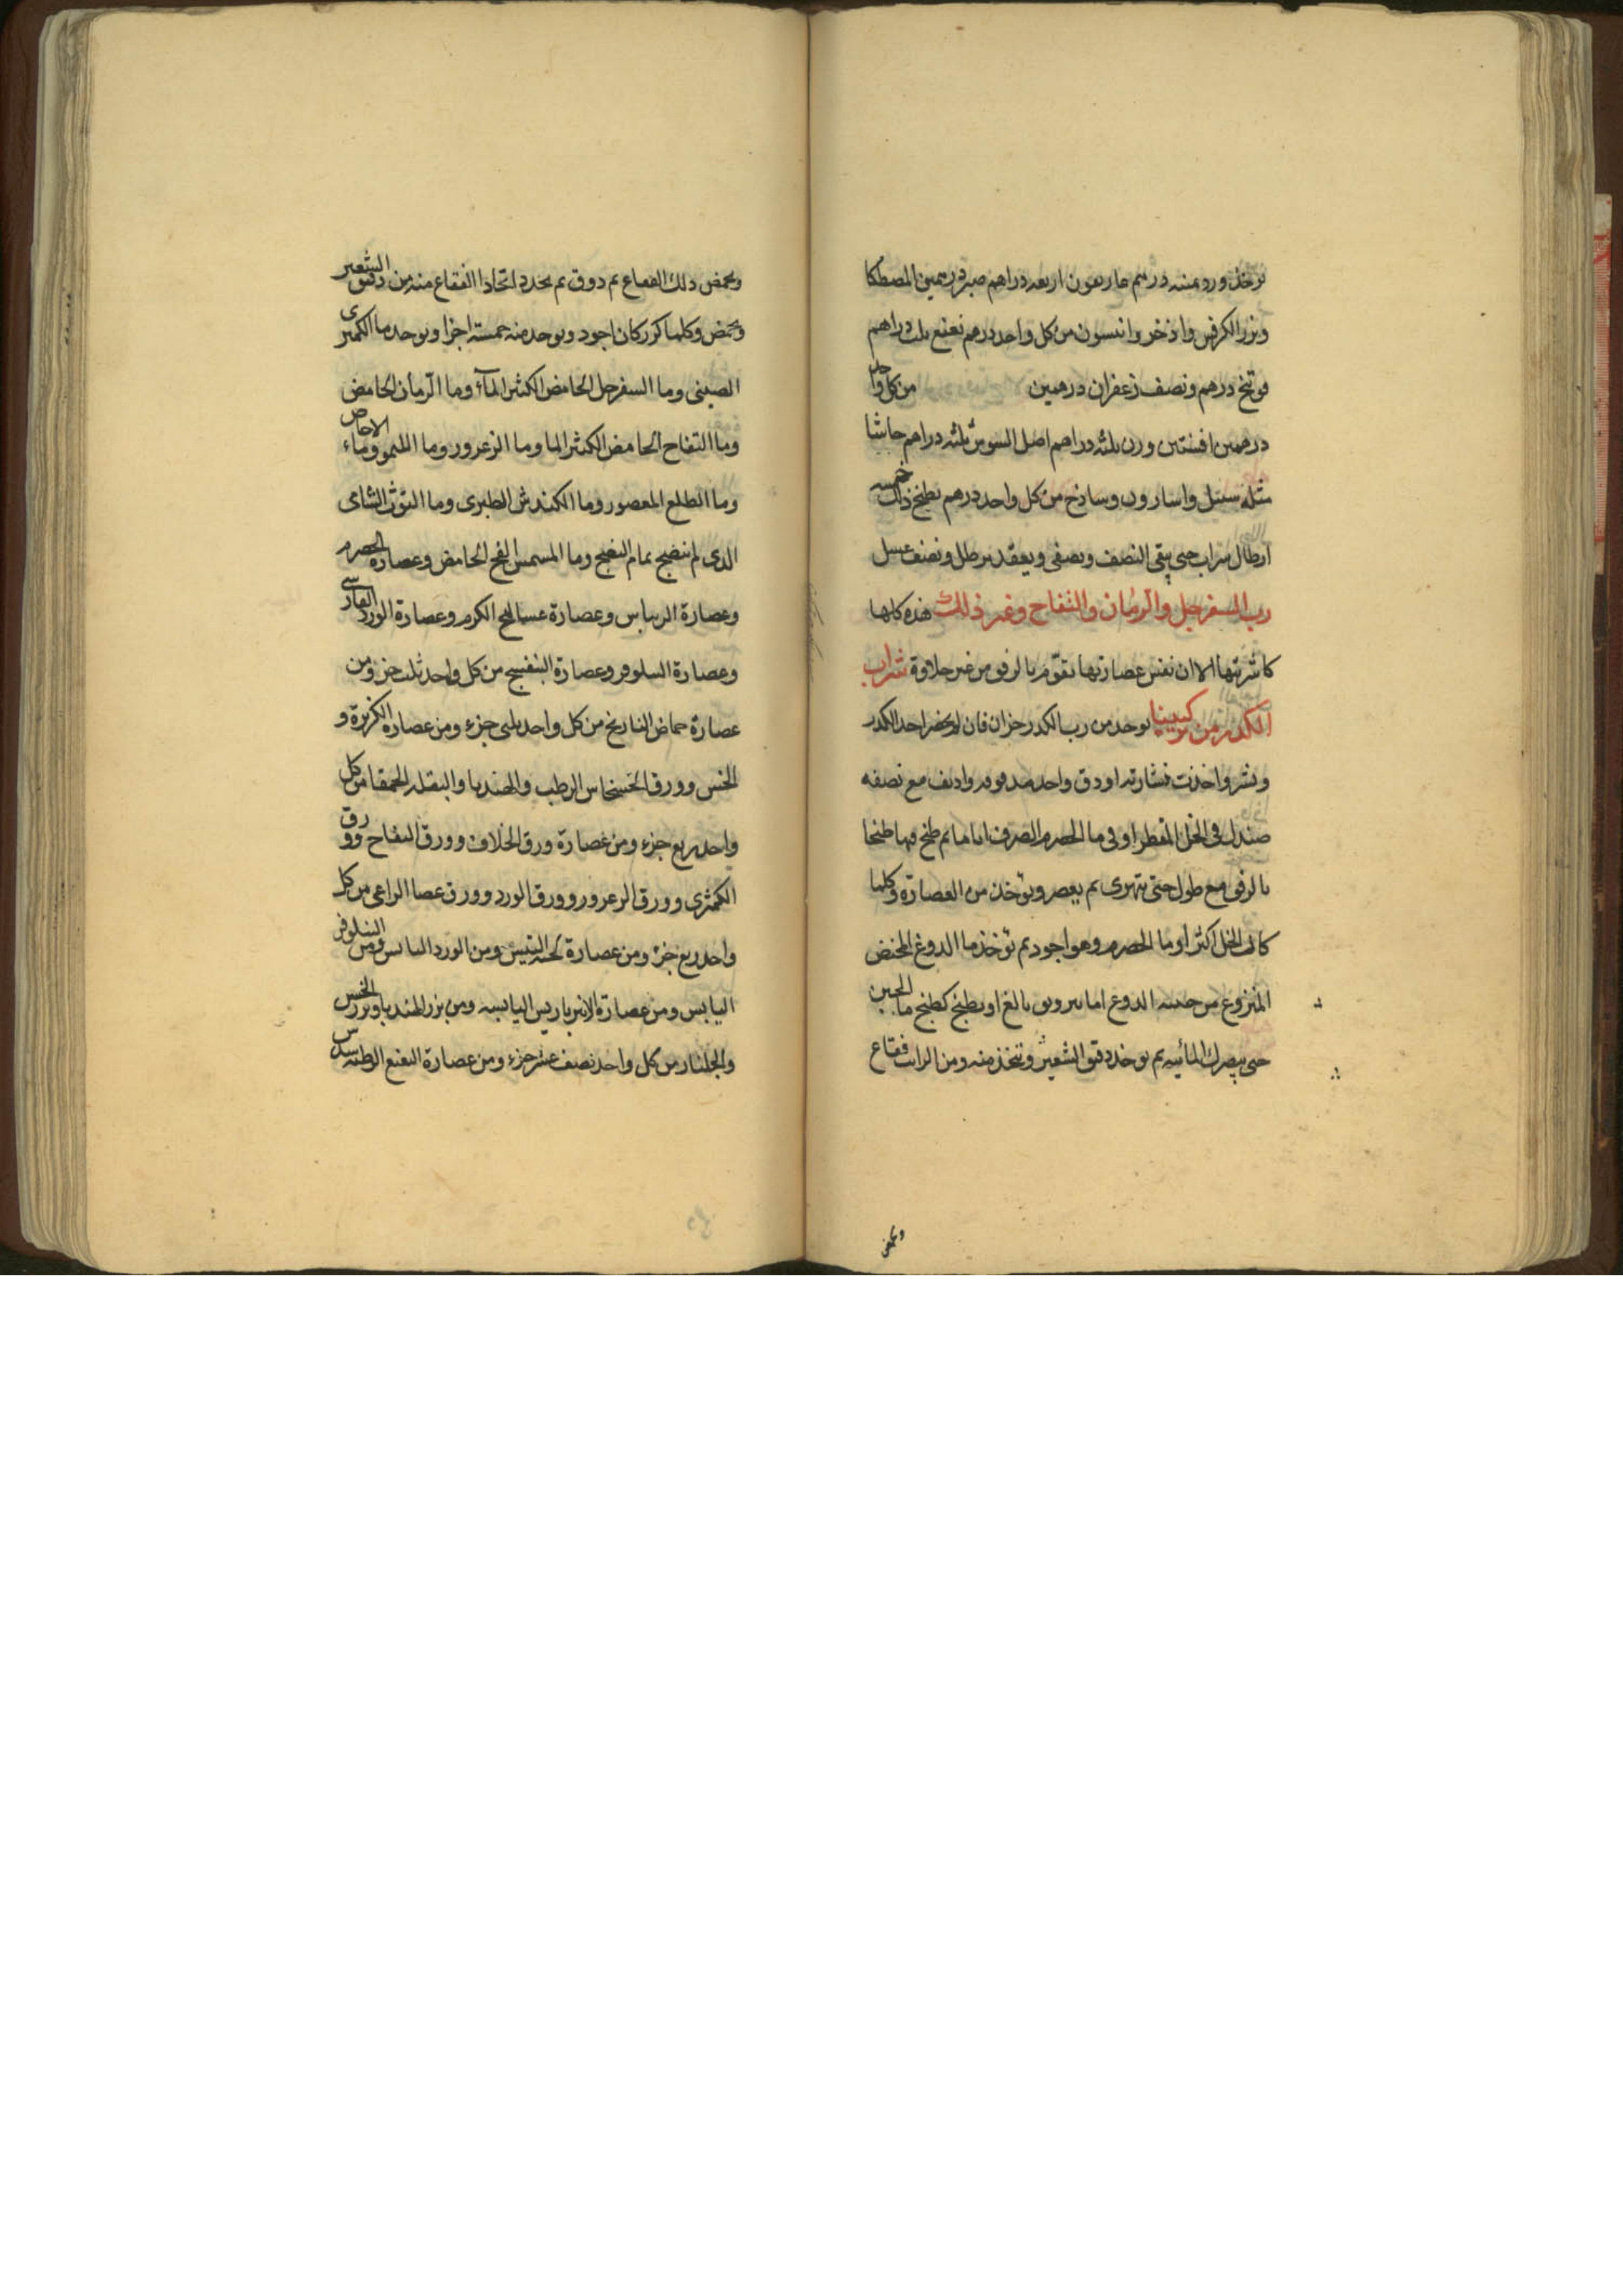 يؤخذ ورد منشه درهم غاريقون اربعه دراهم صبر درهمين المصطكا
وبزر الكرفس واذخر وانيسون من كل واحد درهم نعنع ثلث دراهم
فوتنج درهم ونصف زعفران درهمين من كل واحد
درهمين افسنتين وزن ثلثه دراهم اصل السوس ثلثه دراهم حاشا
مثله سنبل واسارون وساذج من كل واحد درهم يطبخ ذلك خمسه
ارطال شراب حتى يبقى النصف ويصفى ويعقد برطل ونصف عسل
رب السفرجل والرمان والتفاح وغير ذلك هذه كلها
كاشربتها الا ان نفس عصارتها تقوم بالرفق من غير حلاوة شراب
الكدر من تركيبنا يوحد من رب الكدر جزان فان لم يحضر احد الكدر
ونشر واخذت نشارته او دق واحد مدقوقه واديف مع نصفه
صندل فى الخل المقطر او فى ما الحصرم الصرف اياما ثم طبخ فيها طبخا
بالرفق مع طول حتى يتهرى ثم يعصر ويؤخذ من العصارة وكلما
كان الخل اكثر او ما الحصرم وهو اجود ثم تؤخذ ما الدوغ المخيض
المنزوع من الدوغ اما بترويق بالغ او يطبخ كطبخ ما الجبن
حتى المائيه ثم يوخذ دقيق الشعير وتتخذ منه ومن الرائب فقاع
ويحمض
ويحمض ذلك الفقاع ثم دوق ثم يجدد اتخاذ الفقاع منه من دقيق الشعير
ويحمض وكلما كرر كان اجود ويوخد منه خمسة اجزا ويوخد ما الكمثرى
الصينى وما السفرجل الحامض الكثير الماء وما الرمان الحامض
وما التفاح الحامض الكثير الما وما الزعرور وما الليمو وماء الاجاص
وما الطلع المعصور وما الكندش الطبرى وما التوث الشامى
الذى لم ينضج تمام النضج وما المشمش الفج الحامض وعصارة الحصرم
وعصارة الريباس وعصارة عساليج الكرم وعصارة الورد الفارسى
وعصارة النيلوفر وعصارة البنفسج من كل واحد ثلث جزو ومن
عصارة حماض النارنج من كل واحد ثلثى جزء ومن عصارة الكزبرة و
الخس وورق الخشخاش الرطب والهندبا والبقله الحمقا من كل
واحد ربع جزء ومن عصارة ورق الخلاف وورق التفاح وورق
الكمثرى وورق الزعرور وورق الورد وورق عصا الراعى من كل
واحد ربع جزء ومن عصارة لحية التيس ومن الورد اليابس ومن النيلوفر
اليابس ومن عصارة الانبرباريس اليابسه ومن بزر الهندبا وبزر الخس
والجلنار من كل واحد نصف عشر جزء ومن عصارة النعنع الرطبه سدس